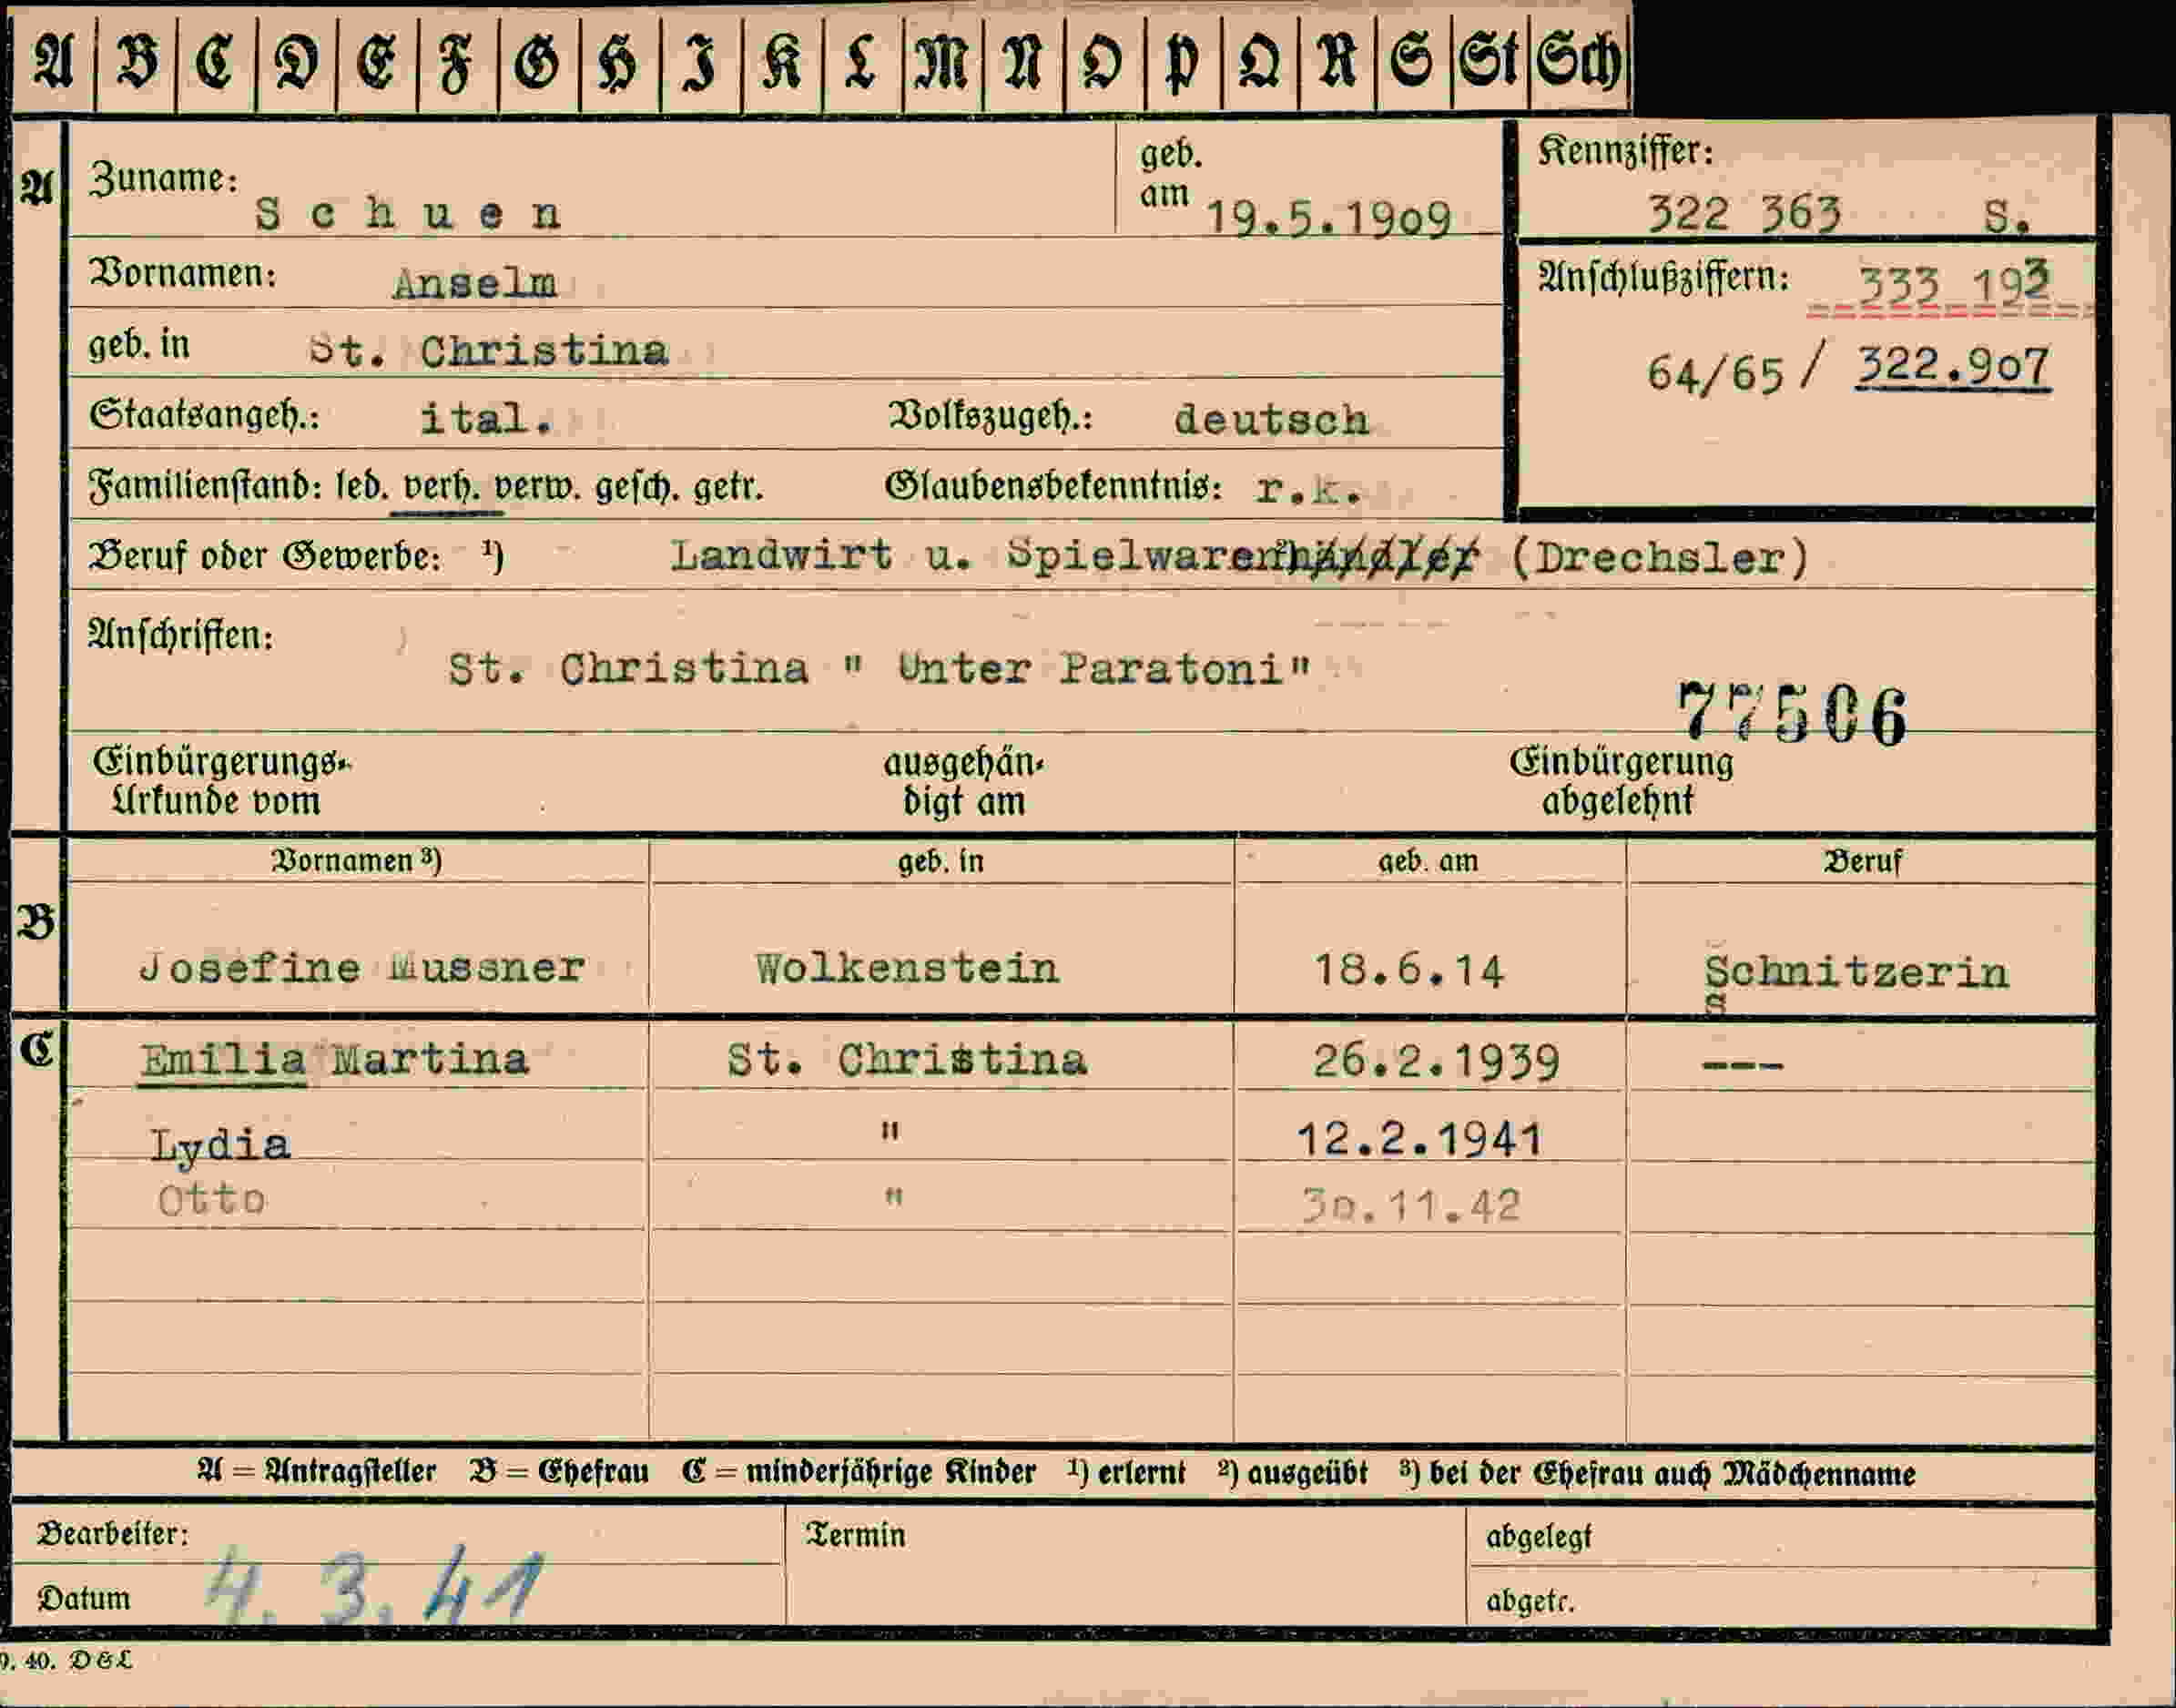 A B C D E F G H I K L M N O P Q R S St Sch
A
Zuname: Schuen
geb. am 19.5.1909
Kennziffer:
322 363 S.
Vornamen: Anselm
Anschlußziffern: 333 193
geb. in St. Christina
64/65 / 322.907
Staatsangeh.: ital. Volkszugeh.: deutsch
Familienstand: led. verh. verw. gesch. getr. Glaubensbekenntnis: r.k.
Beruf oder Gewerbe: ¹) Landwirt u. Spielwarenhändler (Drechsler)
Anschriften:
St. Christina " Unter Paratoni"
77506
Einbürgerungs- ausgehän- Einbürgerung
Urkunde vom digt am abgelehnt
Vornamen ³) geb. in geb. am Beruf
B
Josefine Mussner Wolkenstein 18.6.14 Schnitzerin
s
C Emilia Martina St. Christina 26.2.1939 ---
Lydia " 12.2.1941
Otto " 30.11.42
A = Antragsteller B = Ehefrau C = minderjährige Kinder ¹) erlernt ²) ausgeübt ³) bei der Ehefrau auch Mädchenname
Bearbeiter: Termin abgelegt
Datum 4.3.41 abgetr.
40. D&L